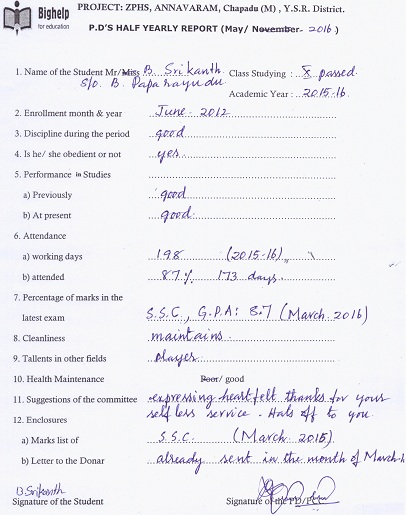 Bighelp
for education
PROJECT: ZPHS, ANNAVARAM, Chapadu (M) , Y.S.R. District.
P.D'S HALF YEARLY REPORT (May/ November- 2016 )
1. Name of the Student Mr/Miss B. Srikanth Class Studying : X passed
S/o. B. Papa rayudu Academic Year : 2015-16
2. Enrollment month & year June - 2012
3. Discipline during the period good
4. Is he/ she obedient or not yes
5. Performance in Studies
a) Previously good
b) At present good
6. Attendance
a) working days 198 (2015-16)
b) attended 87% 173 days
7. Percentage of marks in the
latest exam S.S.C, G.P.A: 8.7 (March 2016)
8. Cleanliness maintains
9. Tallents in other fields player
10. Health Maintenance Poor/ good
11. Suggestions of the committee expressing heartfelt thanks for your
selfless service - Hats off to you
12. Enclosures
a) Marks list of S.S.C. (March 2015)
b) Letter to the Donar already sent in the month of March
B Srikanth
Signature of the Student Signature of the PD/FCC